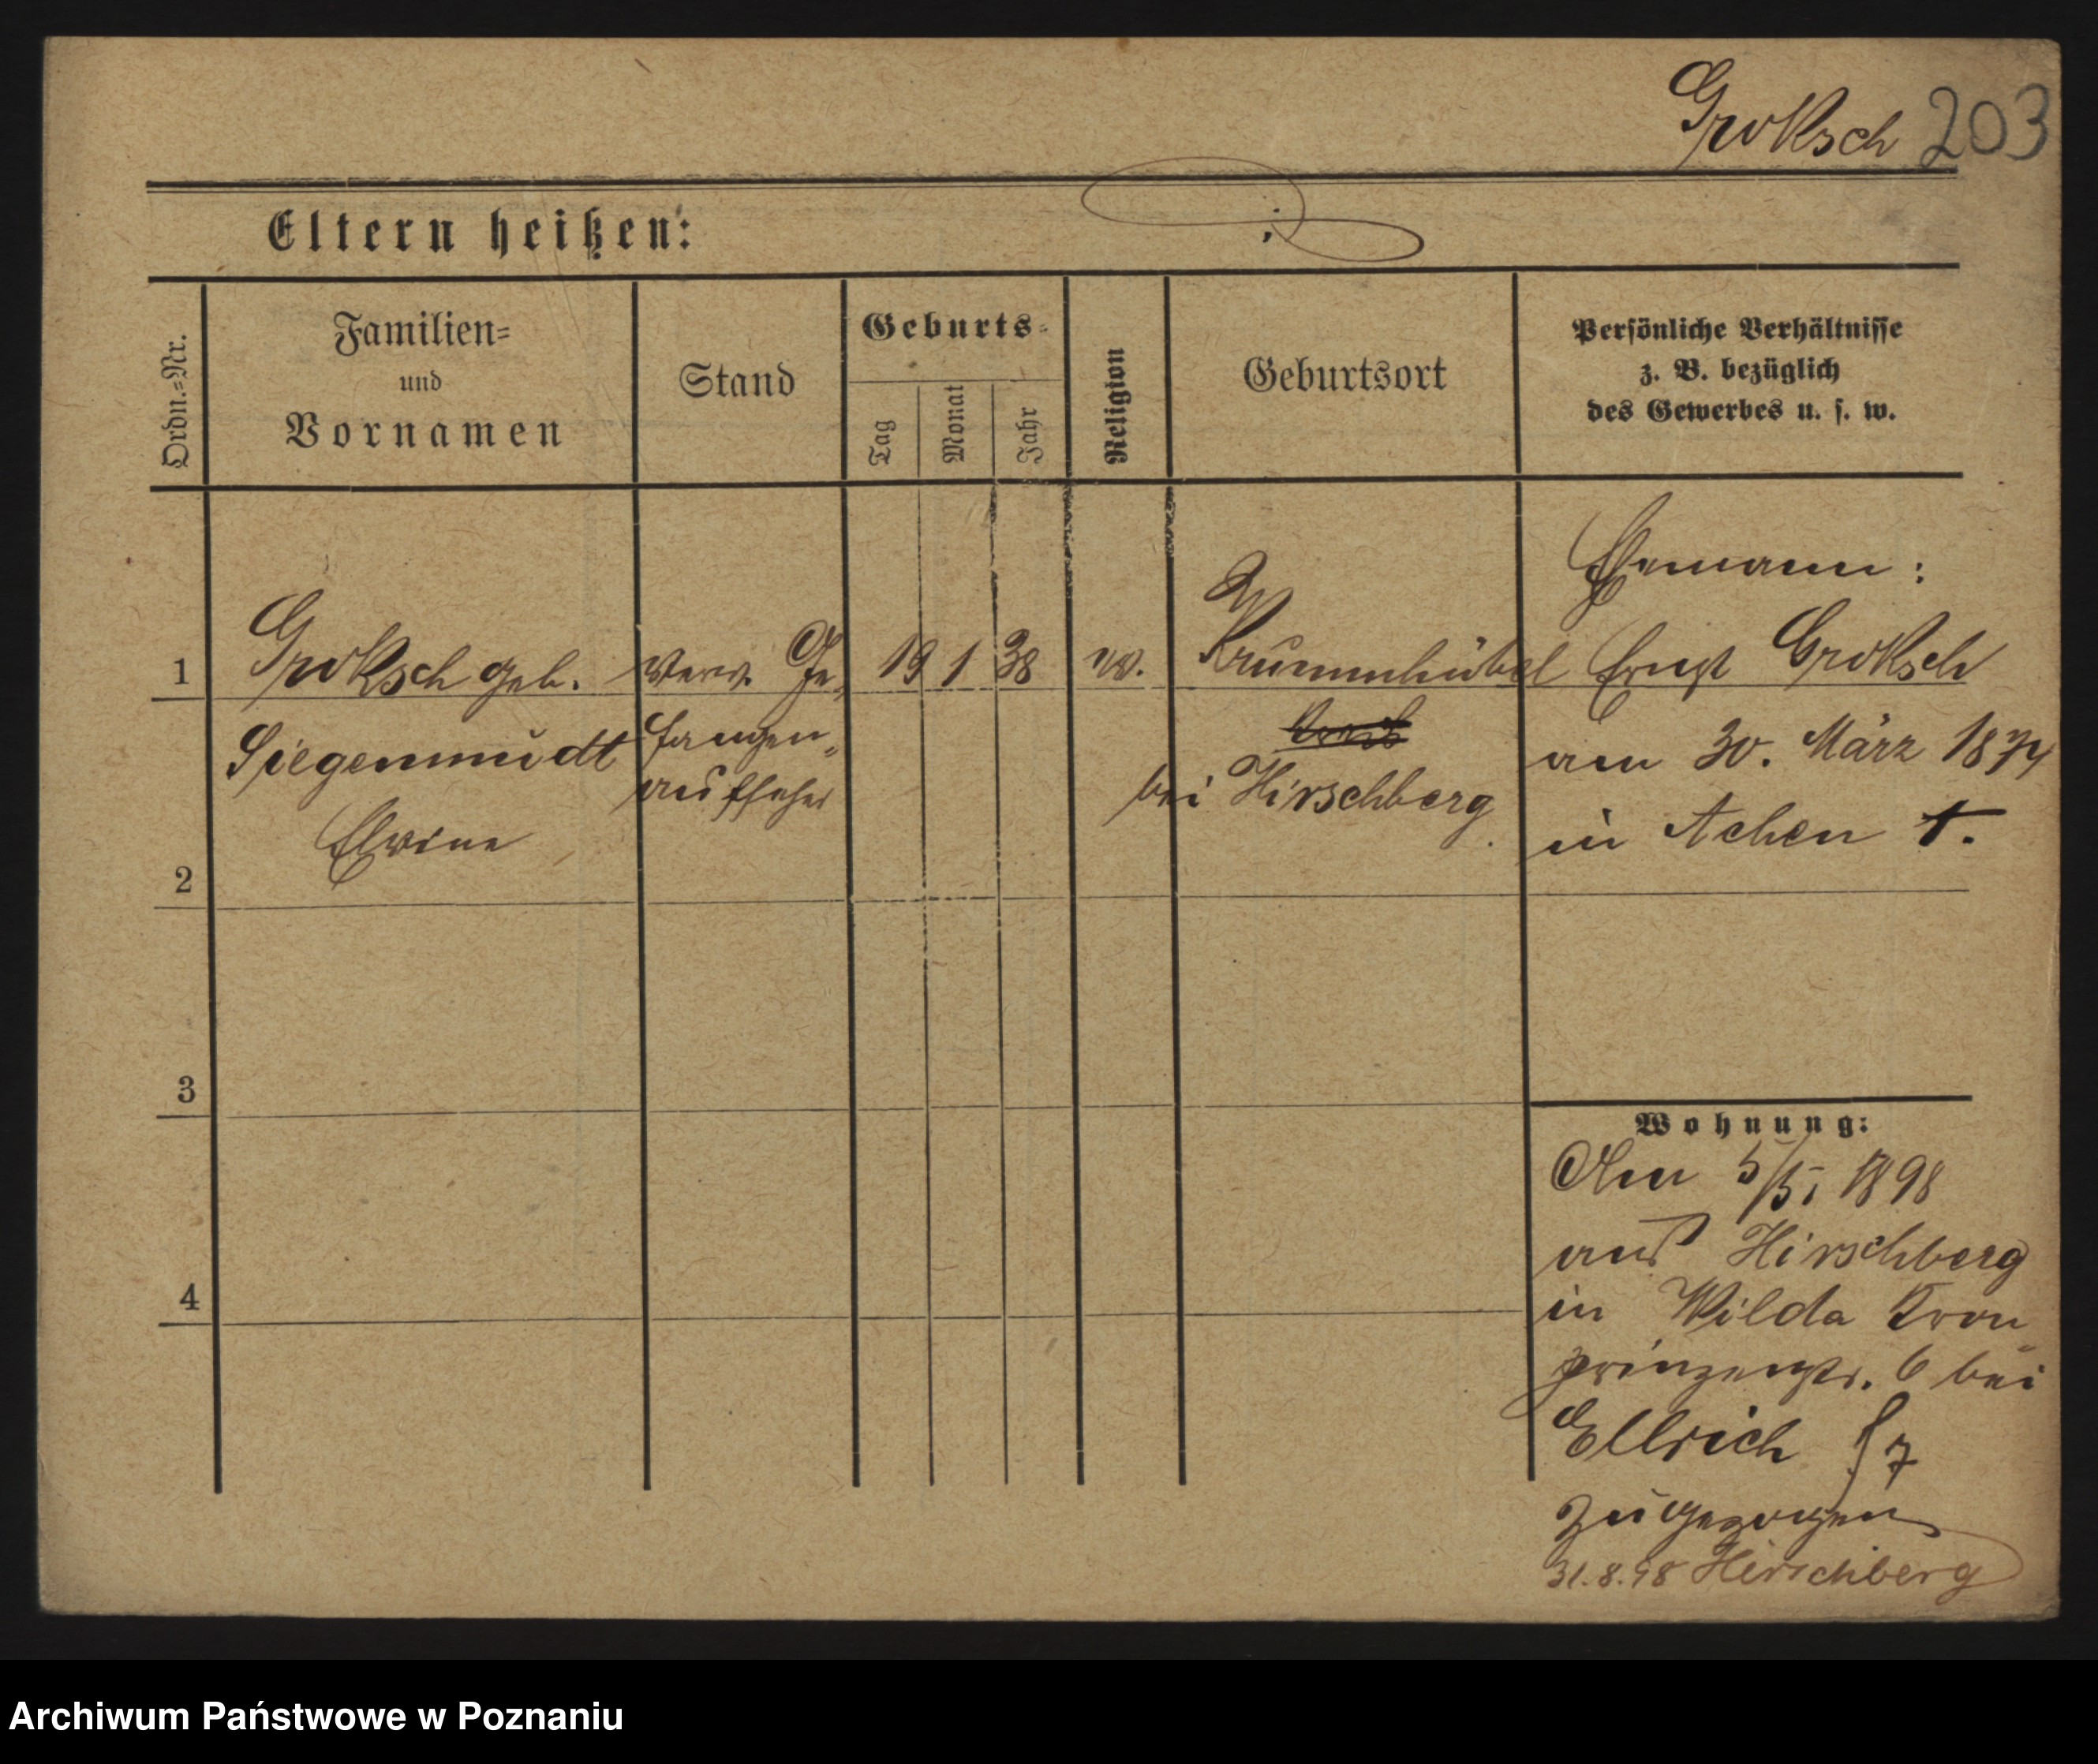 Groksch 203
Eltern heißen:
Ordn.=Nr.
Familien=
und
Vornamen
Stand
Geburts=
Tag
Monat
Jahr
Religion
Geburtsort
Persönliche Verhältnisse
z. B. bezüglich
des Gewerbes u. s. w.
Ehemann:
1 Groksch geb. verw. Ge= 19 1 38 ev. Krummhübel Ernst Groksch
Siegenmundt fangen= am 30. März 1874
aufseher bei Hirschberg
Elvine in Achen †.
2
3
4
Wohnung:
Am 5/5. 1898
aus Hirschberg
in Wilda Kron
prinzenstr. 6 bei
Ellrich
zugezogen
31.8.98 Hirschberg
Archiwum Państwowe w Poznaniu